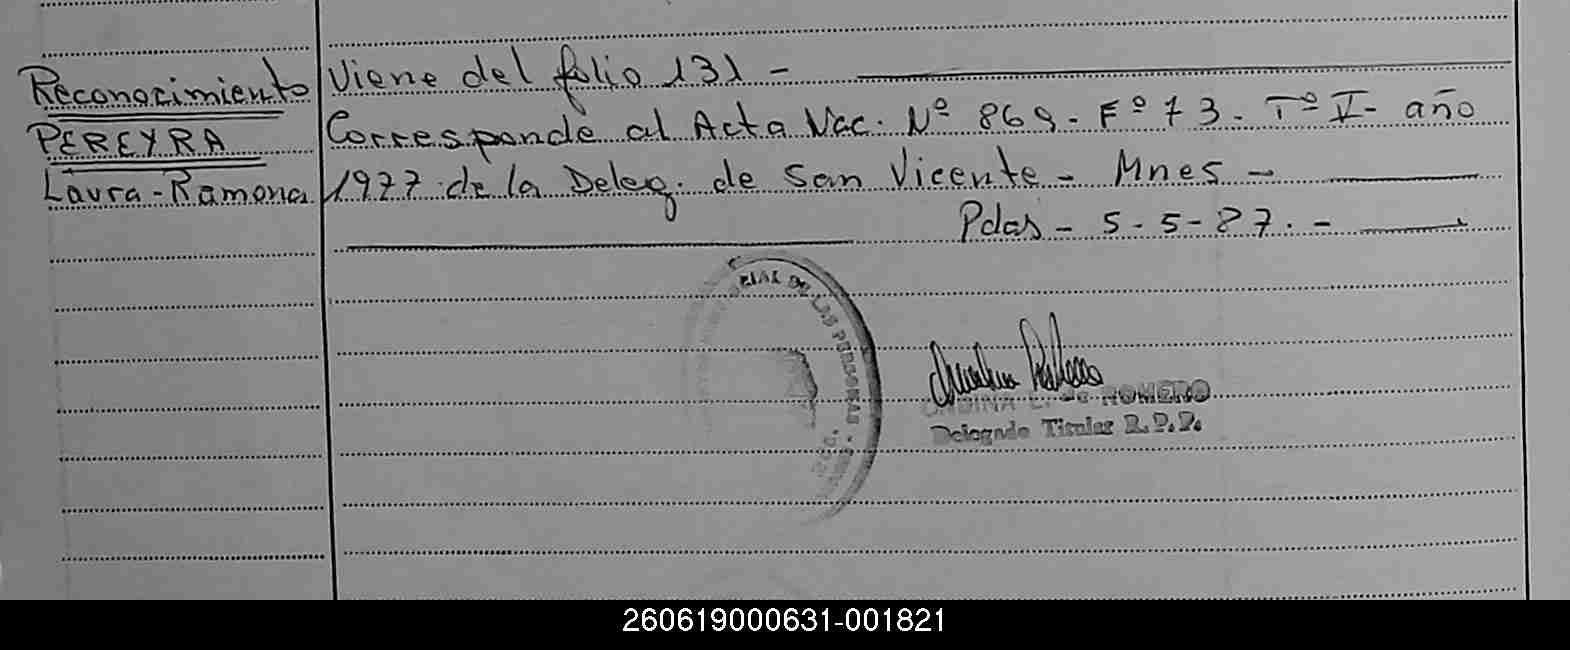 Reconocimiento
PEREYRA
Laura-Ramona
Viene del folio 131 -
Corresponde al Acta Nac. Nº 869- Fº 73. Tº V- año
1977 de la Deleg. de San Vicente - Mnes -
Pdas - 5-5-87. -
DE LAS PERSONAS
ROMERO
Delegado Titular R.P.P.
260619000631-001821